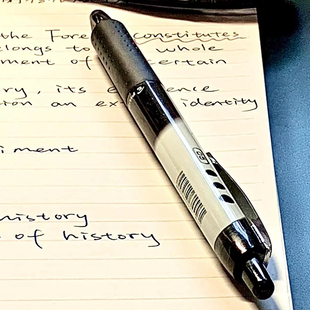 the Fore constitutes
elongs to whole
ment of certain
ry, its ence
ion an ex identity
iment
history
of history